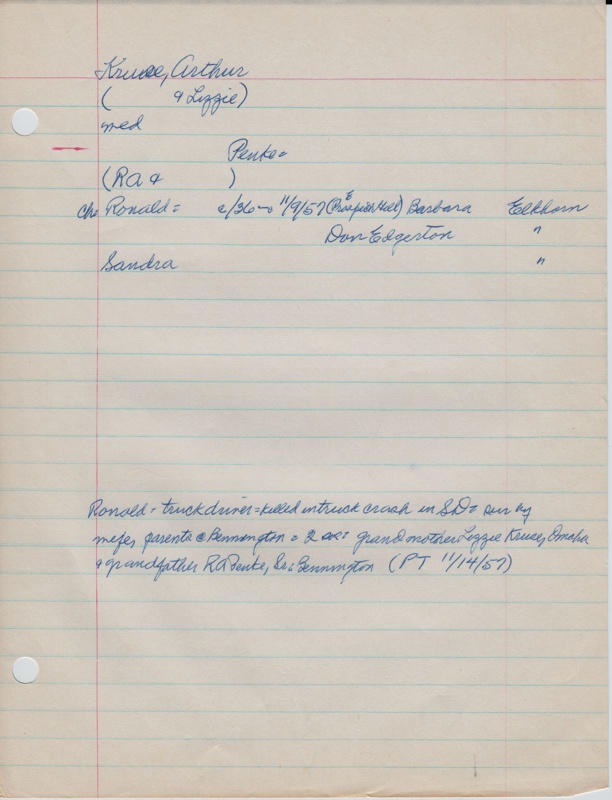 Kruse, Arthur
( & Lizzie)
med
Penke=
(RA & )
ch= Ronald= c/36 — 11/9/57 (Prospect Hill) Barbara Elkhorn
E
Don Edgerton "
Sandra "
Ronald - truck driver = killed in truck crash in SD = sur by
wife, parents @ Bennington = 2 ss= grandmother Lizzie Kruse, Omaha
& grandfather RA Penke, Sr. Bennington (PT 11/14/57)